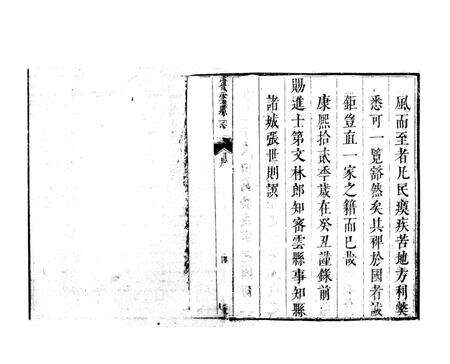 風而至者凡民瘼疾苦地方利獘
悉可一覽豁然矣其裨於國者誠
鉅豈直一家之籍而已哉
康熙拾貳季歲在癸丑謹錄前
賜進士第文林郎知密雲縣事知縣
諸城張世則譔